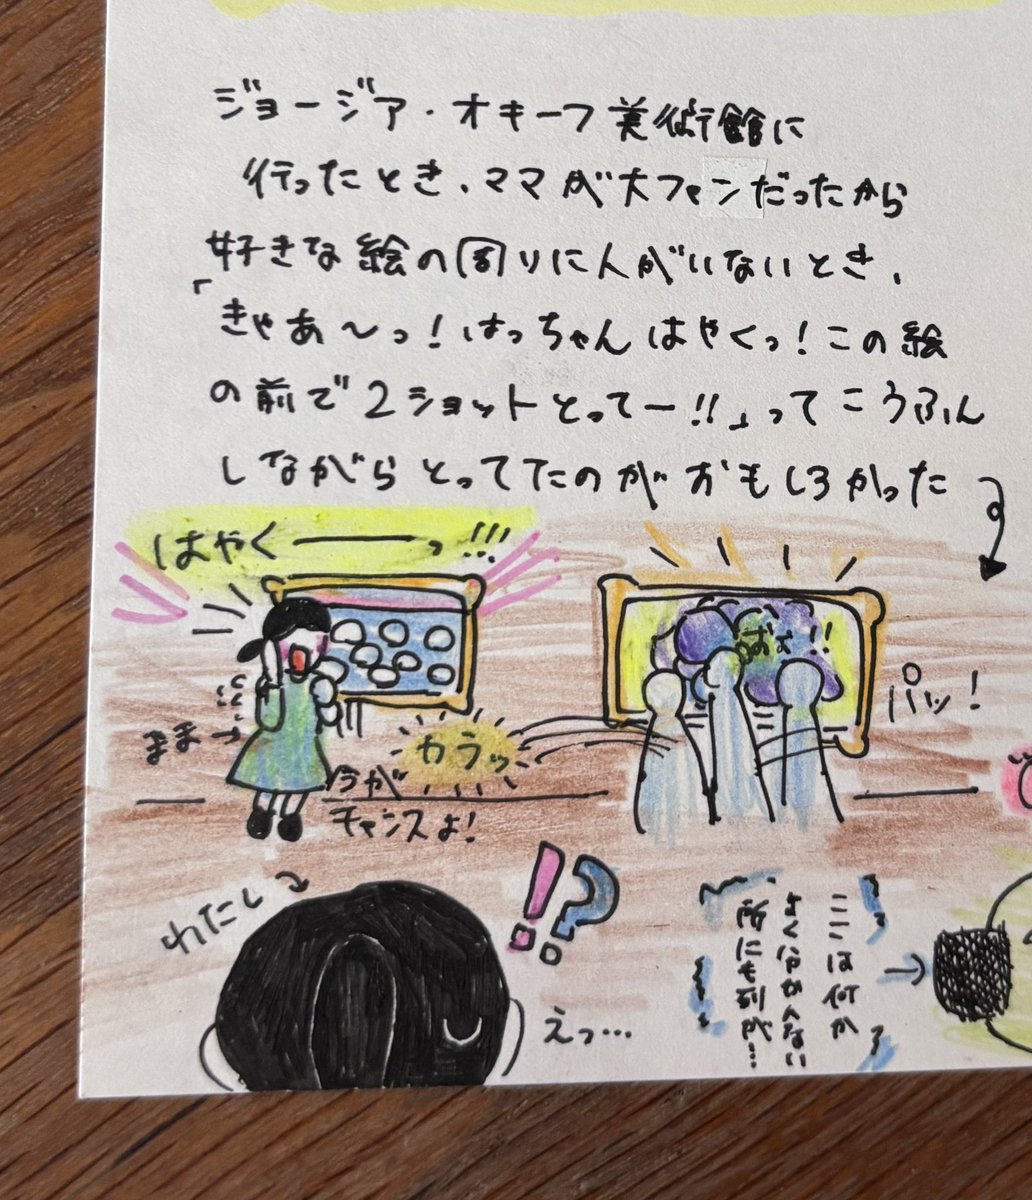 ジョージア・オキーフ美術館に
行ったとき、ママが大ファンだったから
好きな絵の周りに人がいないとき、
「きゃあ〜っ！はっちゃんはやくっ！この絵
の前で2ショットとってー!!」ってこうふん
しながらとってたのがおもしろかった
はやく――っ!!!
おお!!
パッ！
まま→
カラッ
今が
チャンスよ！
わたし
!?
えっ…
ここは何か
よく分かんない
所にも列が…